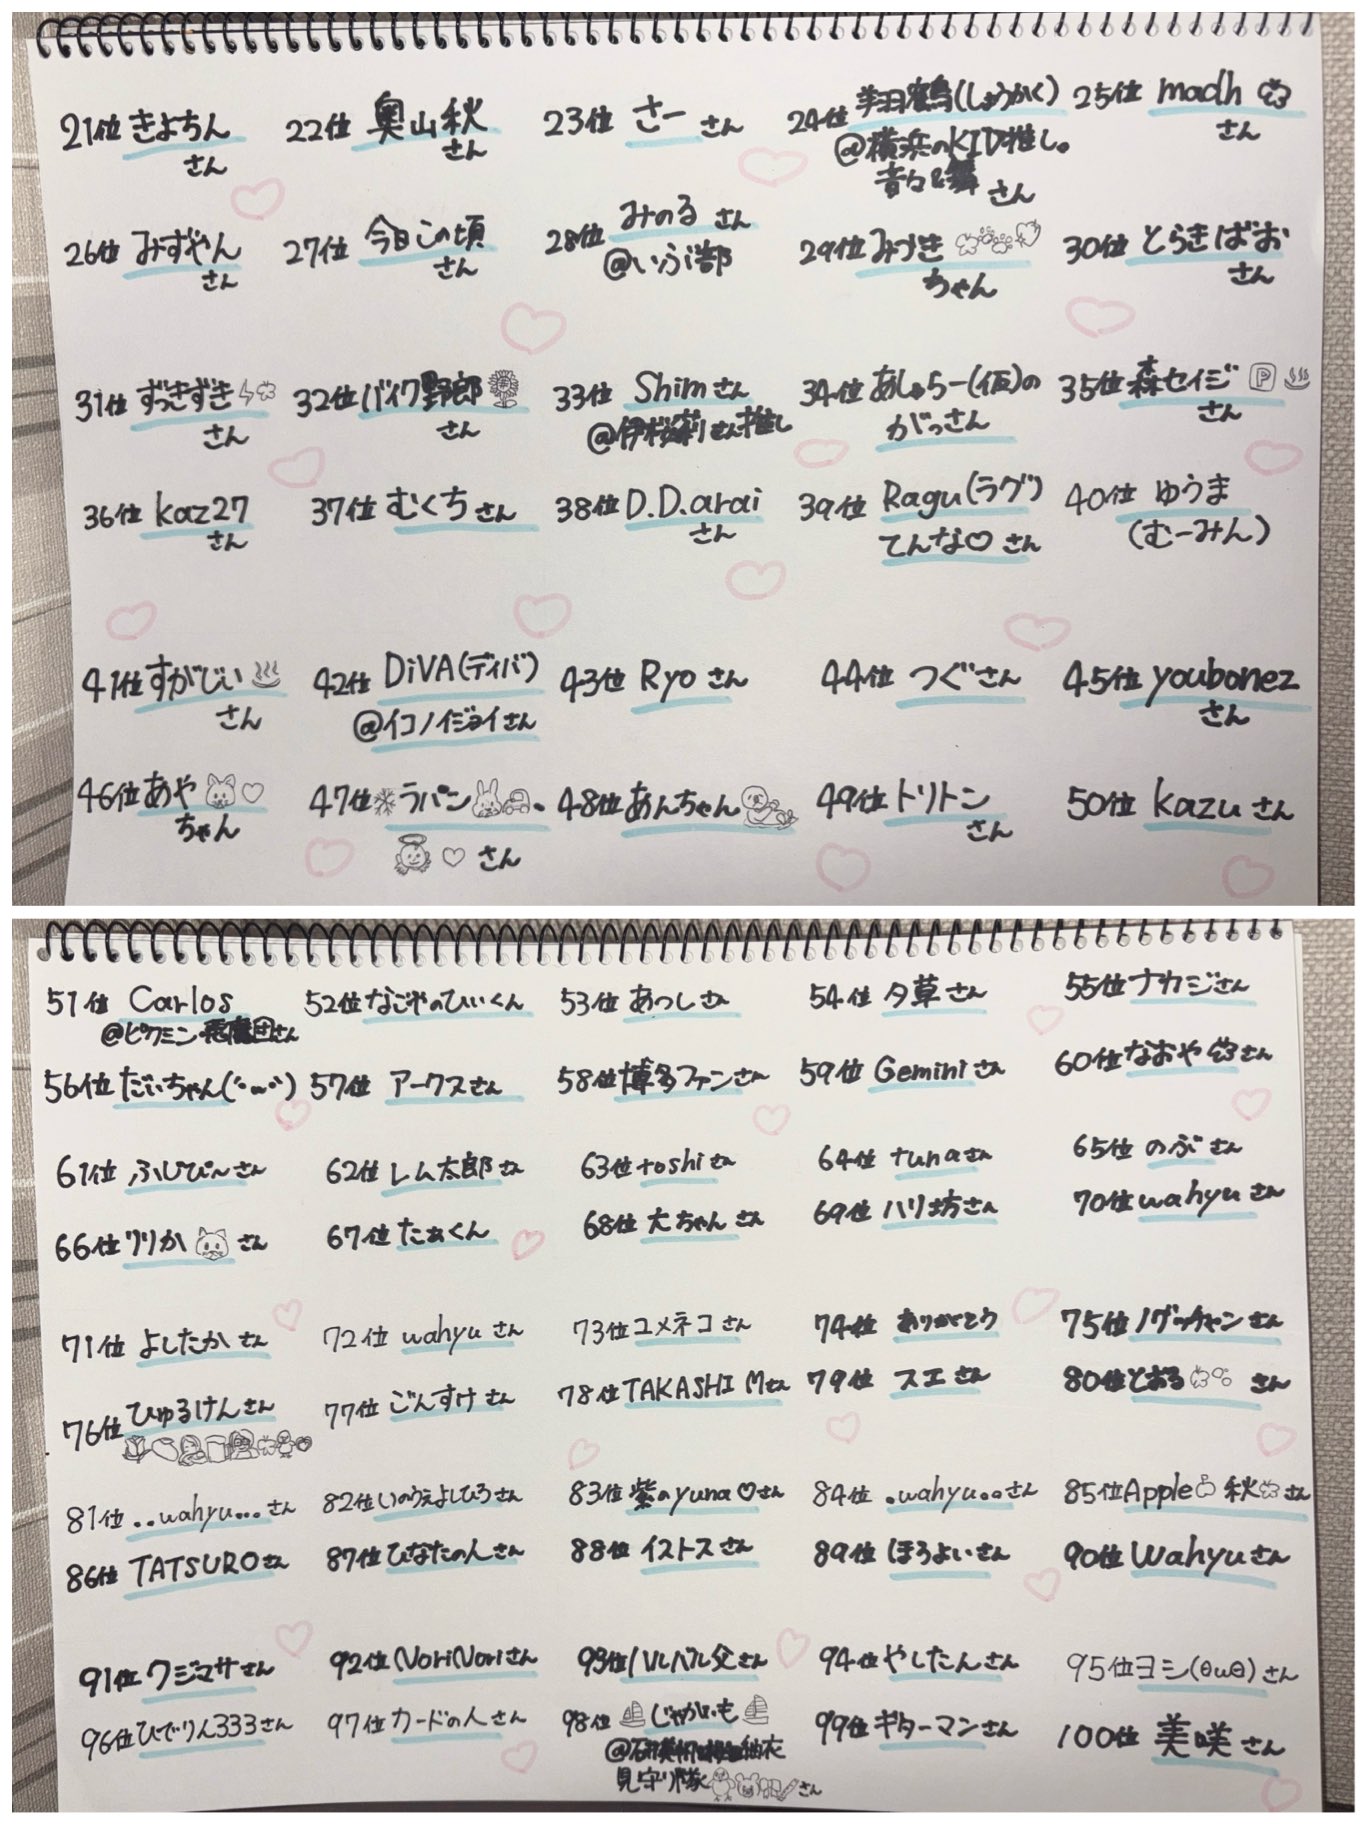 21位 きよちん さん
22位 奥山秋 さん
23位 さー さん
24位 翔鶴(しょうかく)
@横浜のKID推し。
音々&舞 さん
25位 madh さん
26位 みずやん さん
27位 今日この頃 さん
28位 みのる さん
@いぶi部
29位 みづき ちゃん
30位 とらきばお さん
31位 ずっきずき さん
32位 バイク野郎 さん
33位 Shim さん
@伊桜莉さん推し
34位 あしゅらー(仮)の
がっさん
35位 森セイジ P さん
36位 kaz27 さん
37位 むくち さん
38位 D.D.arai さん
39位 Ragu(ラグ)
てんな♡ さん
40位 ゆうま
(むーみん)
41位 すがじい♨ さん
42位 DiVA(ディバ)
@イコノイジョイさん
43位 Ryo さん
44位 つぐさん
45位 youbonez さん
46位 あや ♡ ちゃん
47位 ❄ラパン 。
♡ さん
48位 あんちゃん
49位 トリトン さん
50位 kazu さん
51位 Carlos
@ピクミン 悪魔団さん
52位 なごやのひいくん
53位 あつしさん
54位 夕草さん
55位 ナカジさん
56位 だいちゃん(´･ω･`)
57位 アークスさん
58位 博多ファンさん
59位 Gemini さん
60位 なおや さん
61位 ふじぴ〜さん
62位 レム太郎さん
63位 toshi さん
64位 tuna さん
65位 のぶさん
66位 りりか さん
67位 たぁくん
68位 大ちゃん さん
69位 ハリ坊さん
70位 wahyu さん
71位 よしたか さん
72位 wahyu さん
73位 ユメネコ さん
74位 ありがとう
75位 ノグッチャン さん
76位 ひゅるけん さん
77位 ごんすけ さん
78位 TAKASHI M さん
79位 スエ さん
80位 とおる さん
81位 ..wahyu... さん
82位 いのうえよしひろ さん
83位 紫のyuna♡さん
84位 .wahyu.. さん
85位 Apple 秋 さん
86位 TATSURO さん
87位 ひなたの人 さん
88位 イストス さん
89位 ほろよい さん
90位 Wahyu さん
91位 ワジマサ さん
92位 NoriNori さん
93位 ハルパル父 さん
94位 やしたん さん
95位 ヨシ(θωθ) さん
96位 ひでりん333 さん
97位 カードの人 さん
98位 じゃがいも
紬衣
見守り隊 さん
99位 ギターマン さん
100位 美咲 さん